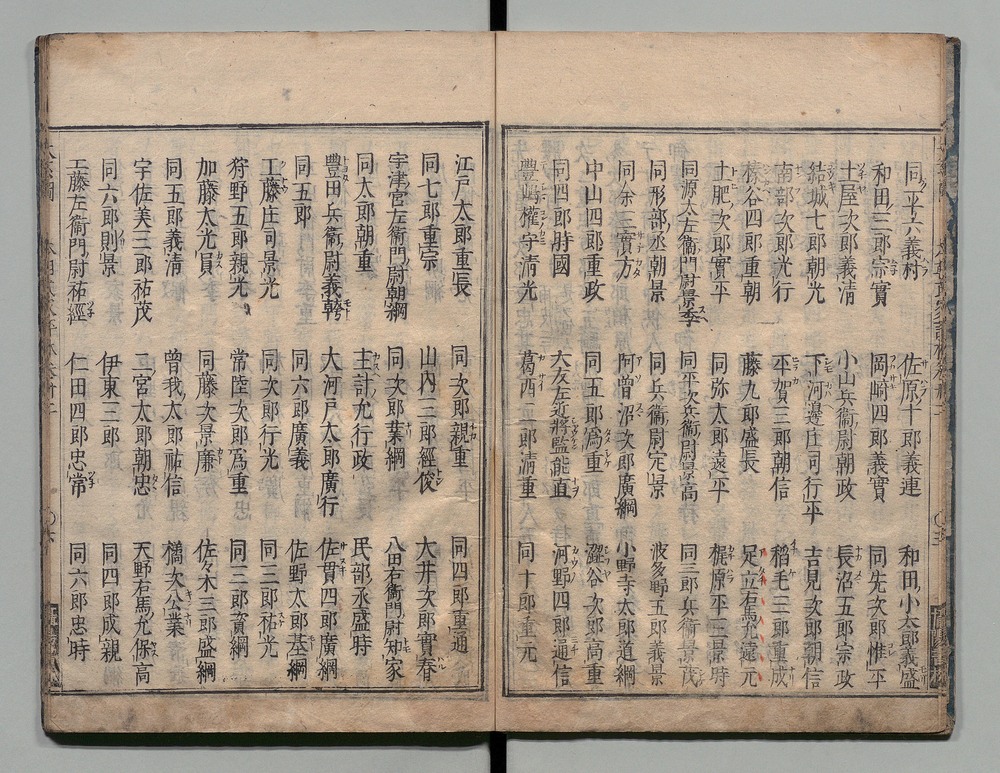 同平六義村 佐原十郎義連 和田小太郎義盛
和田三郎宗實 岡崎四郎義實 同先次郎惟平
土屋次郎義清 小山兵衛尉朝政 長沼五郎宗政
結城七郎朝光 下河邊庄司行平 吉見次郎朝信
南部次郎光行 平賀三郎朝信 稻毛三郎重成
榛谷四郎重朝 藤九郎盛長 足立右馬允遠元
土肥次郎實平 同弥太郎遠平 梶原平三景時
同源太左衞門尉景季 同平次兵衞尉景高 同三郎兵衛景茂
同形部丞朝景 同兵衞尉定景 波多野五郎義景
同余三實方 阿曾沼次郎廣綱 小野寺太郎道綱
中山四郎重政 同五郎爲重 澁谷次郎高重
同四郎時國 大友左近將監能直 河野四郎通信
豐嶋權守清光 葛西三郎清重 同十郎重元
江戸太郎重長 同次郎親重 同四郎重通
同七郎重宗 山内三郎經俊 大井次郎實春
宇津宮左衞門尉朝綱 同次郎葉綱 八田右衞門尉知家
同太郎朝重 主計允行政 民部丞盛時
豐田兵衞尉義幹 大河戸太郎廣行 佐貫四郎廣綱
同五郎 同六郎廣義 佐野太郎基綱
工藤庄司景光 同次郎行光 同三郎祐光
狩野五郎親光 常陸次郎爲重 同三郎資綱
加藤太光員 同藤次景廉 佐々木三郎盛綱
同五郎義清 曾我太郎祐信 橘次公業
宇佐美三郎祐茂 二宮太郎朝忠 天野右馬允保高
同六郎則景 伊東三郎 同四郎成親
工藤左衞門尉祐經 仁田四郎忠常 同六郎忠時